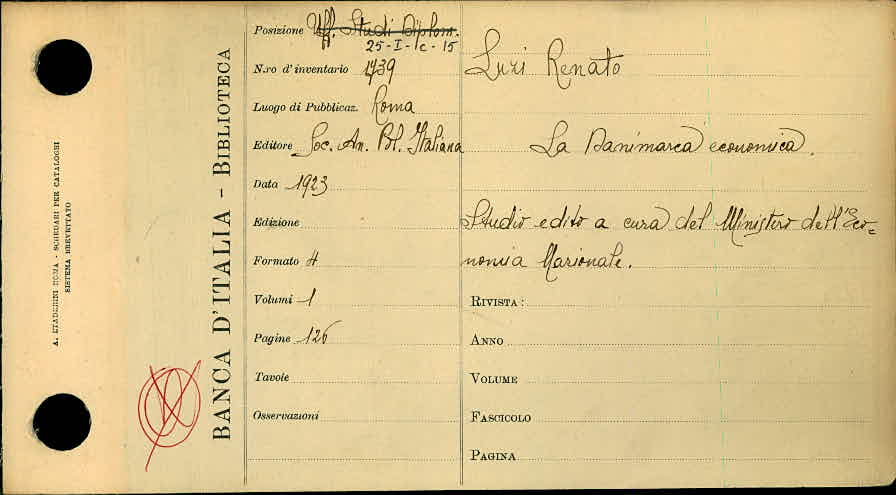 A. STADERINI ROMA - SCHEDARI PER CATALOGHI
SISTEMA BREVETTATO
BANCA D'ITALIA - BIBLIOTECA
Posizione Uff. Studi Diplom.
25-I-c-15
N.ro d'inventario 1739
Luogo di Pubblicaz. Roma
Editore Soc. An. Pol. Italiana
Data 1923
Edizione
Formato 4
Volumi 1
Pagine 126
Tavole
Osservazioni
Luzi Renato
La Danimarca economica.
Studio edito a cura del Ministero dell'Eco=
nomia Nazionale.
RIVISTA:
ANNO
VOLUME
FASCICOLO
PAGINA